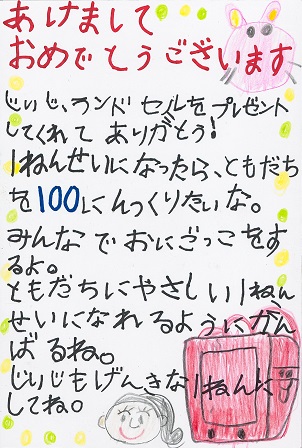 あけまして
おめでとうございます
じいじ、ランドセルをプレゼント
してくれてありがとう!
1ねんせいになったら、ともだち
を100にんつくりたいな。
みんなでおにごっこをす
るよ。
ともだちにやさしい1ねん
せいになれるようにがん
ばるね。
じいじもげんきな1ねんに
してね。